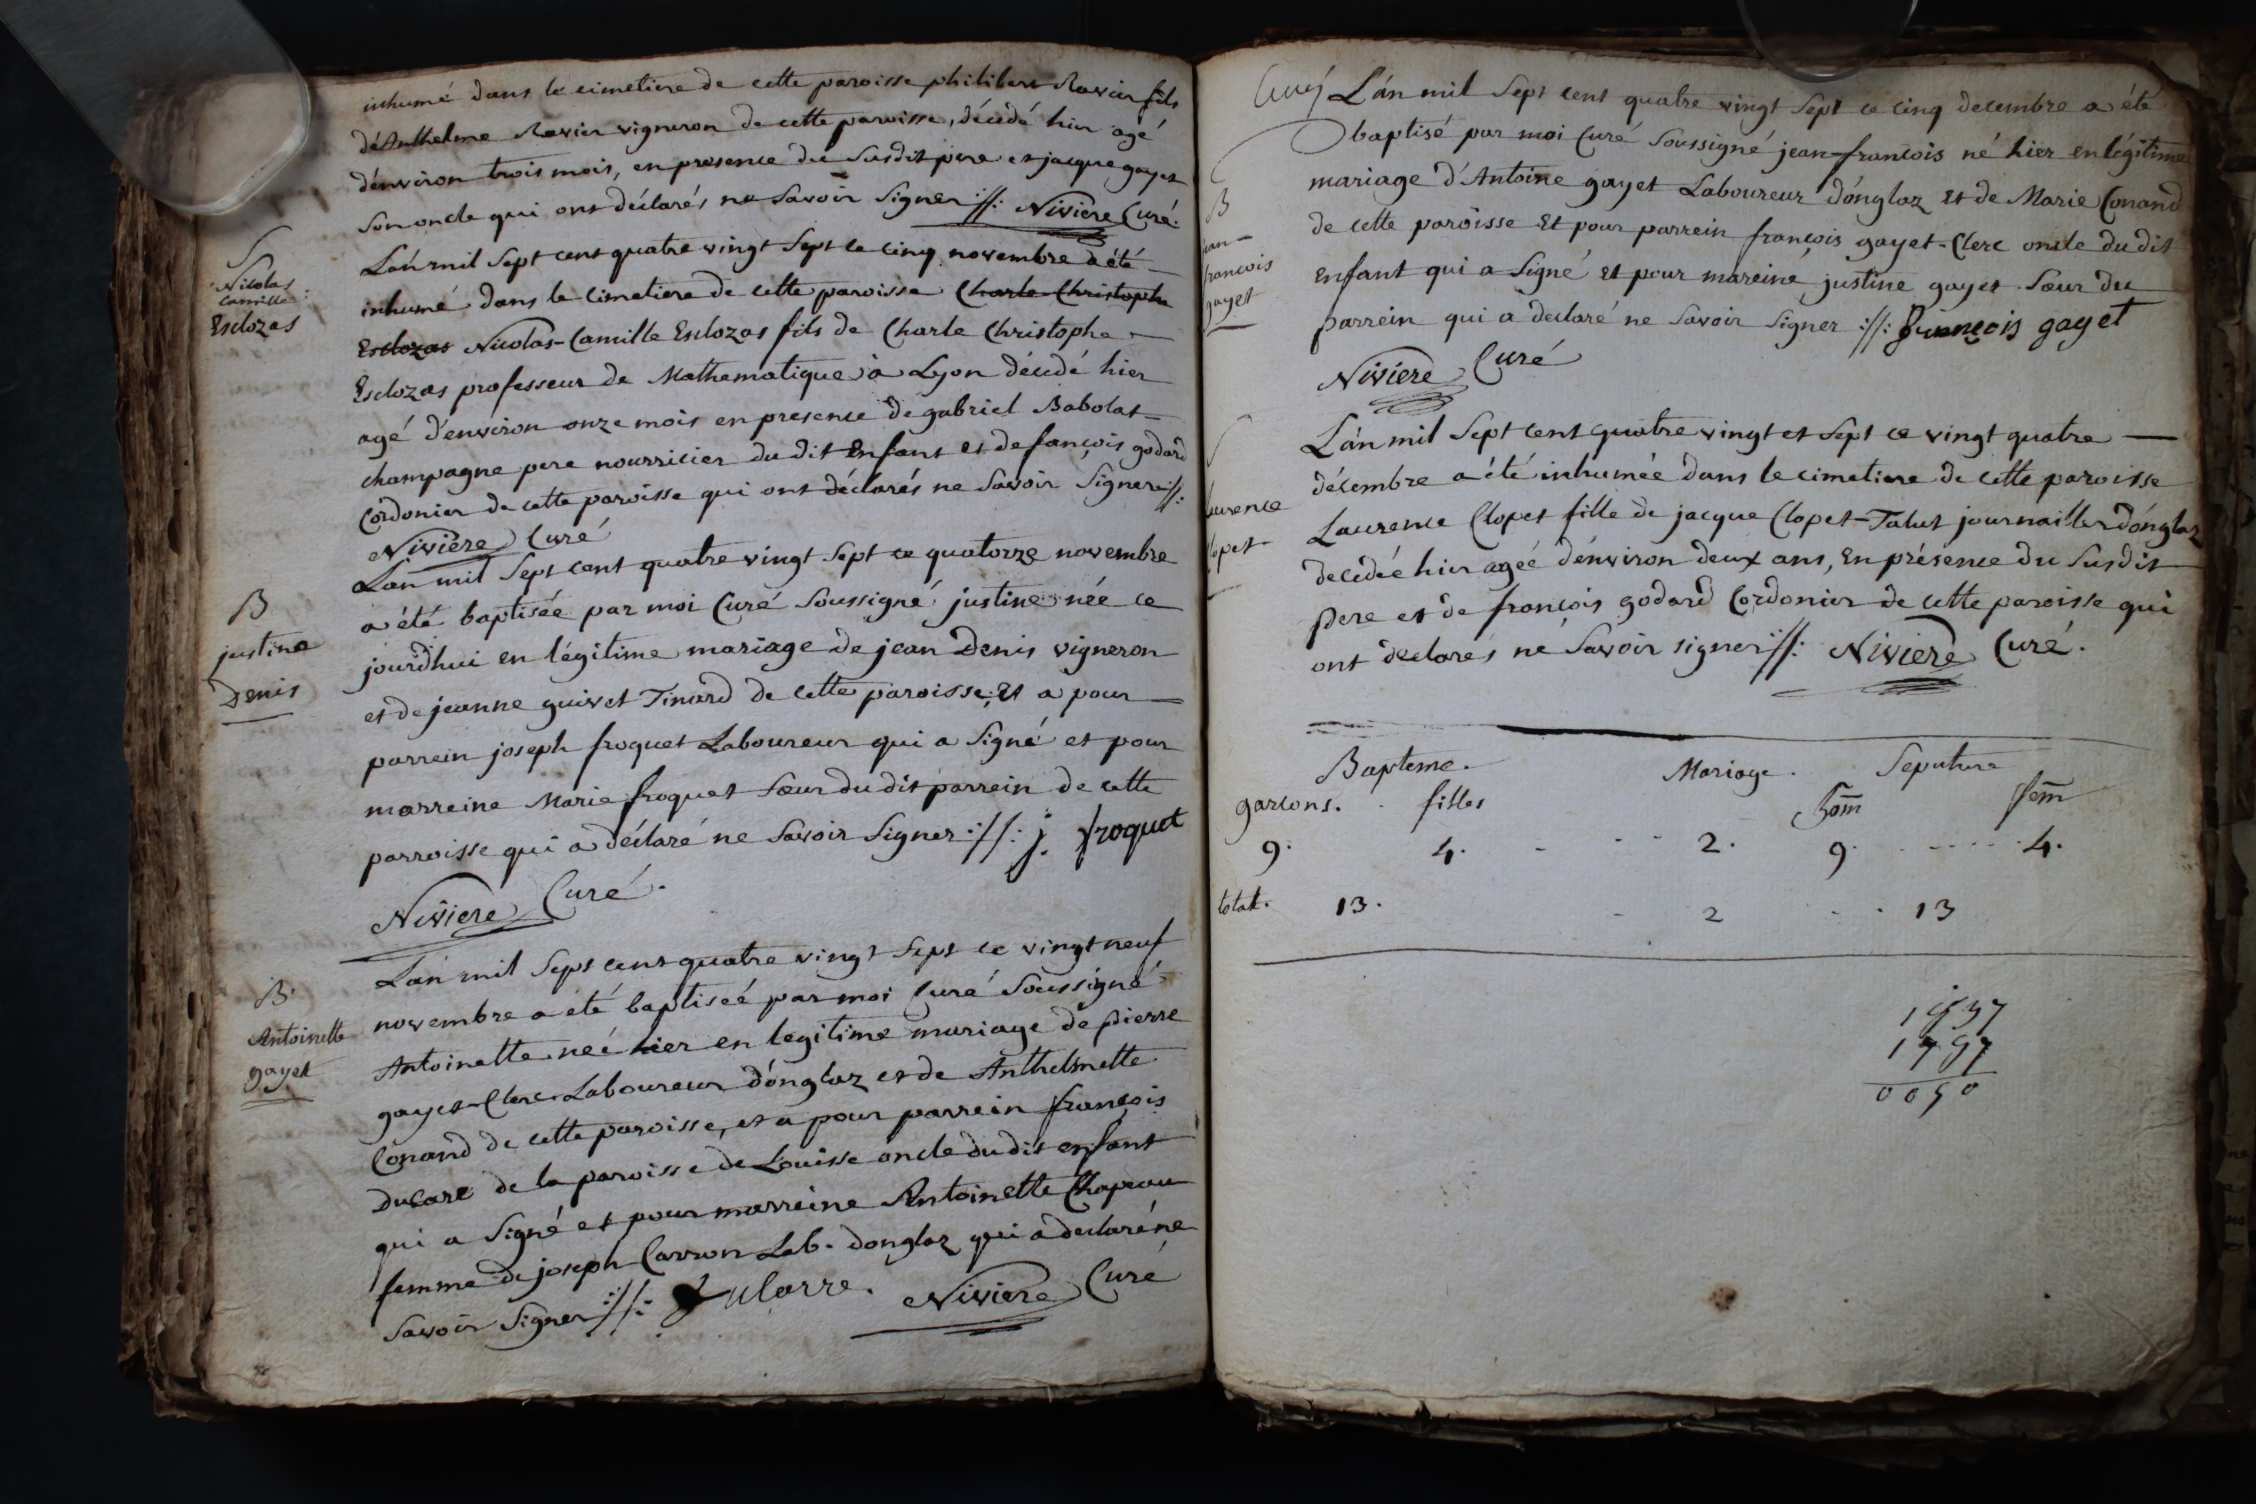 inhumé dans le cimetiere de cette paroisse philibert Ravier fils
d'Anthelme Ravier vigneron de cette paroisse, décédé hier agé
d'environ trois mois, en presence du Susdit pere et jacque gayet
Son oncle qui ont déclarés ne Savoir Signer //: Niviere Curé.
S
Nicolas
Camille
Esclozas
L'an mil Sept cent quatre vingt Sept ce cinq novembre a été
inhumé dans le Cimetiere de cette paroisse Charle Christophe
Esclozas Nicolas-Camille Esclozas fils de Charle Christophe
Esclozas professeur de Mathematique à Lyon décédé hier
agé d'environ onze mois en presence de gabriel Babolat
champagne pere nourricier du dit Enfant et de fançois godard
Cordonier de cette paroisse qui ont déclarés ne Savoir Signer //:
Niviere Curé
B
justine
Denis
L'an mil Sept cent quatre vingt Sept ce quatorze novembre
a été baptisée par moi Curé Soussigné justine née ce
jourd'hui en légitime mariage de jean Denis vigneron
et de jeanne guivet Tinard de cette paroisse, Et a pour
parrein joseph froquet Laboureur qui a Signé et pour
marreine Marie froquet Sœur du dit parrein de cette
parroisse qui a déclaré ne Savoir Signer ://: j. froquet
Niviere Curé.
B
Antoinette
gayet
L'an mil Sept cent quatre vingt Sept ce vingt neuf
novembre a été baptiseé par moi Curé Soussigné
Antoinette neé hier en legitime mariage de pierre
gayet-Clerc Laboureur d'onglaz et de Anthelmette
Conand de cette paroisse, et a pour parrein françois
Ducare de la paroisse de Louisse oncle du dit enfant
qui a Signé et pour marreine Antoinette Chapeau
femme de joseph Carron Lab. d'onglaz qui a declaré ne
Savoir Signer ://: Niviere Curé
L'an mil Sept cent quatre vingt Sept ce cinq decembre a été
baptisé par moi Curé Soussigné jean-francois né hier en légitime
mariage d'Antoine gayet Laboureur d'onglaz et de Marie Conand
de cette paroisse Et pour parrein françois gayet-Clerc oncle du dit
Enfant qui a Signé et pour mareine justine gayet Sœur du
parrein qui a declaré ne Savoir Signer ://: françois gayet
Niviere Curé
B
jean-
francois
gayet
L'an mil Sept cent quatre vingt et Sept ce vingt quatre
décembre a été inhumée dans le cimetiere de cette paroisse
Laurence Clopet fille de jacque Clopet-Talut journaillier d'onglaz
decedée hier agée d'environ deux ans, En présence du Susdit
pere et de françois godard Cordonier de cette paroisse qui
ont declarés ne Savoir signer //: Niviere Curé.
laurence
Clopet
Bapteme. Mariage. Seputure
garcons. filles hom fem
9. 4. 2. 9. 4.
total. 13. 2 13